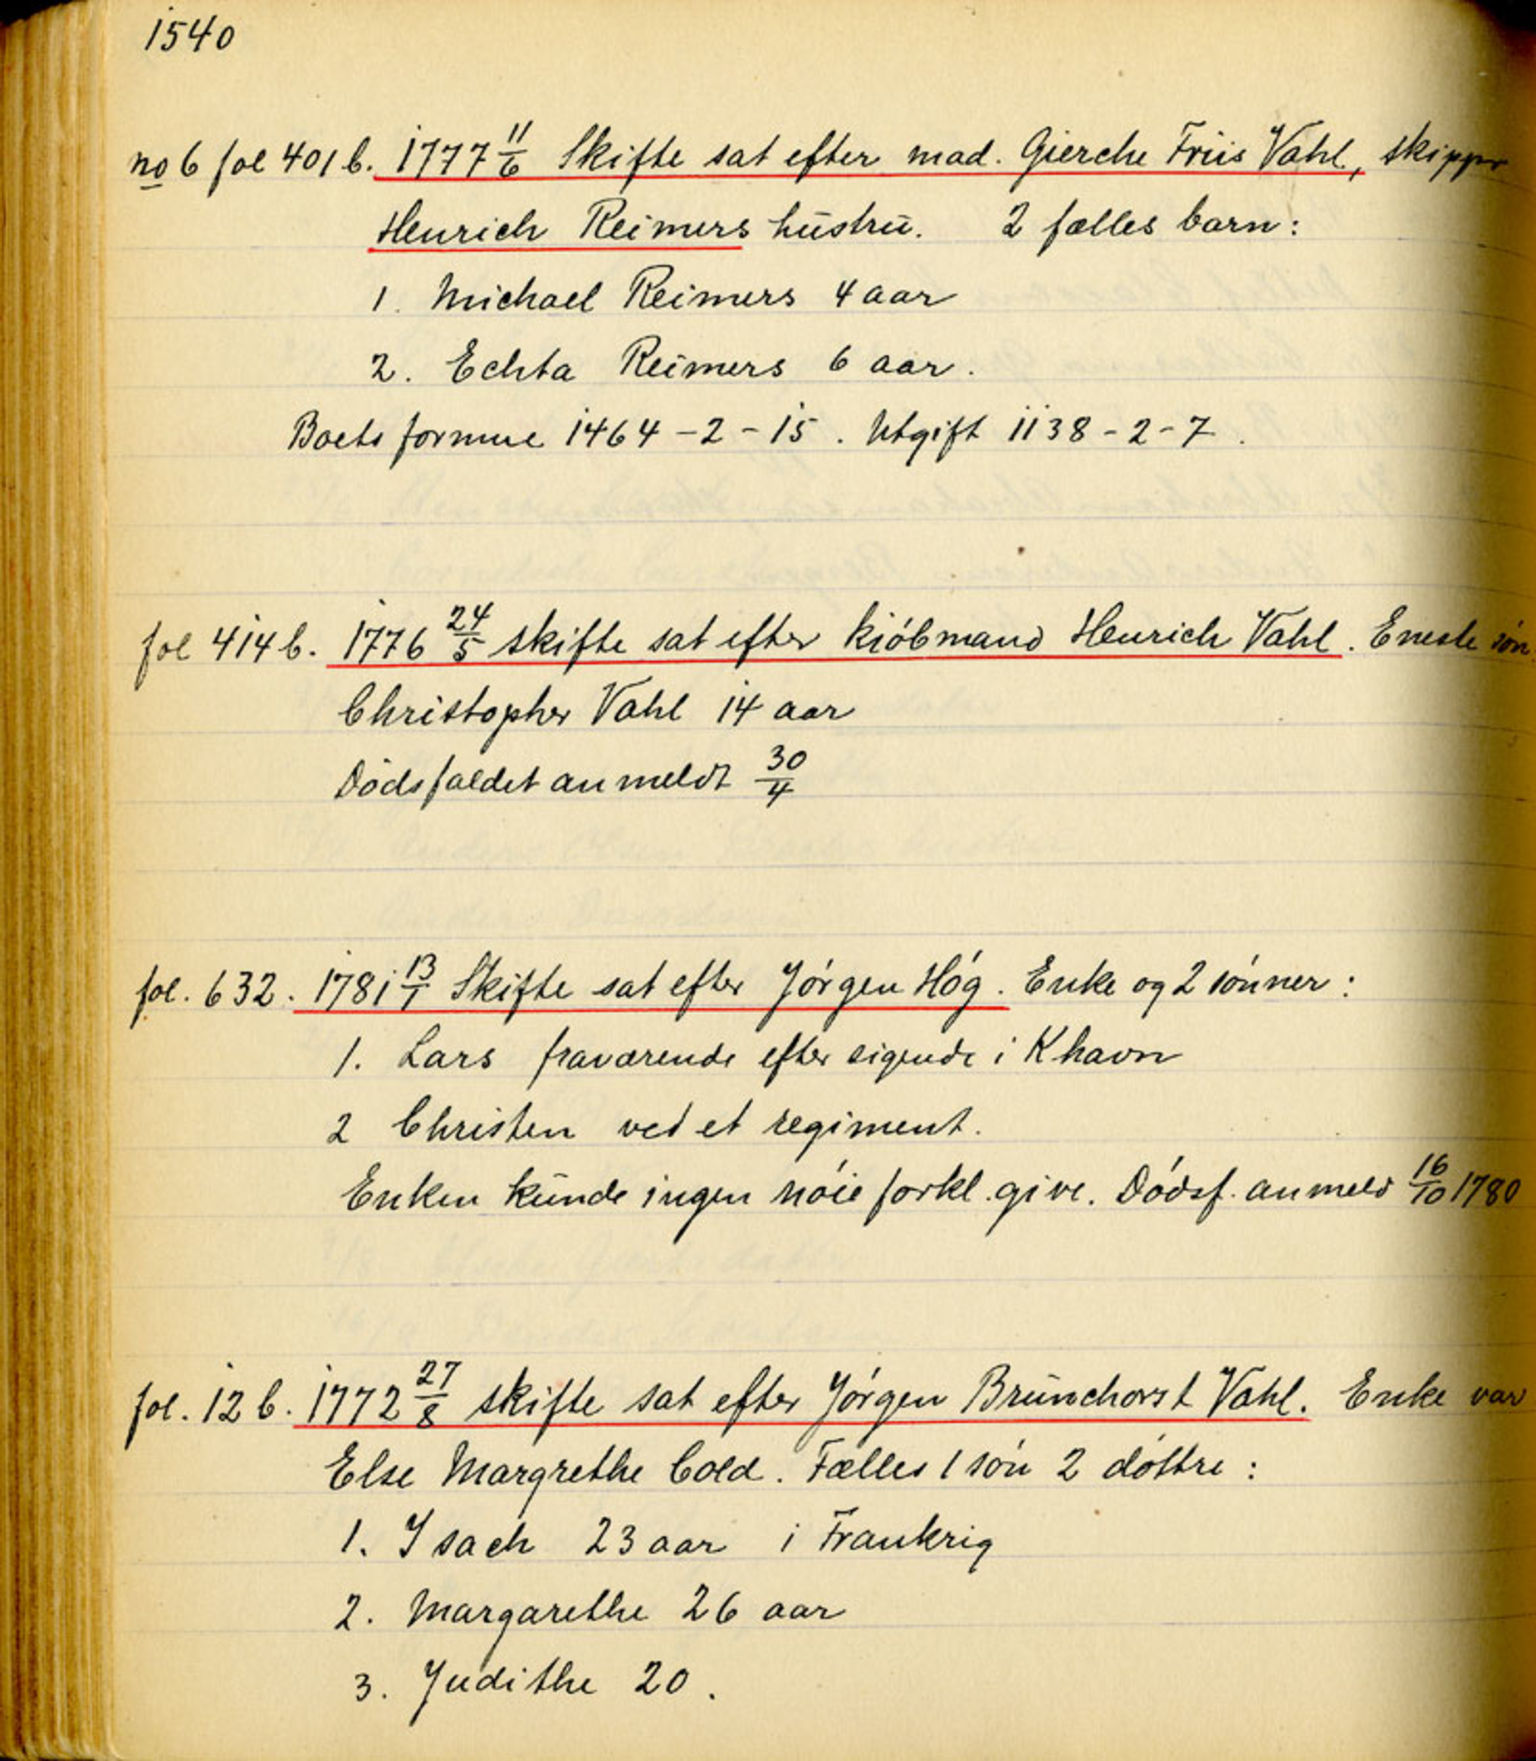 1540
no 6 fol 401 b. 1777 11/6 Skifte sat efter mad. Gierche Friis Vahl, skipper
Henrich Reimers hustru. 2 fælles barn:
1. Michael Reimers 4 aar
2. Echta Reimers 6 aar.
Boets formue 1464-2-15. Utgift 1138-2-7.
fol 414 b. 1776 24/5 skifte sat efter kiöbmand Henrich Vahl. Eneste sön
Christopher Vahl 14 aar
Dödsfaldet anmeldt 30/4
fol. 632. 1781 13/1 Skifte sat efter Jörgen Hög. Enke og 2 sönner:
1. Lars fraværende efter sigende i Khavn
2 Christen ved et regiment.
Enken kunde ingen nöie forkl. give. Dödsf. anmeld 16/10 1780
fol. 12 b. 1772 27/8 skifte sat efter Jörgen Brunchorst Vahl. Enke var
Else Margrethe Cold. Fælles 1 sön 2 döttre:
1. Isach 23 aar i Frankrig
2. Margarethe 26 aar
3. Judithe 20.